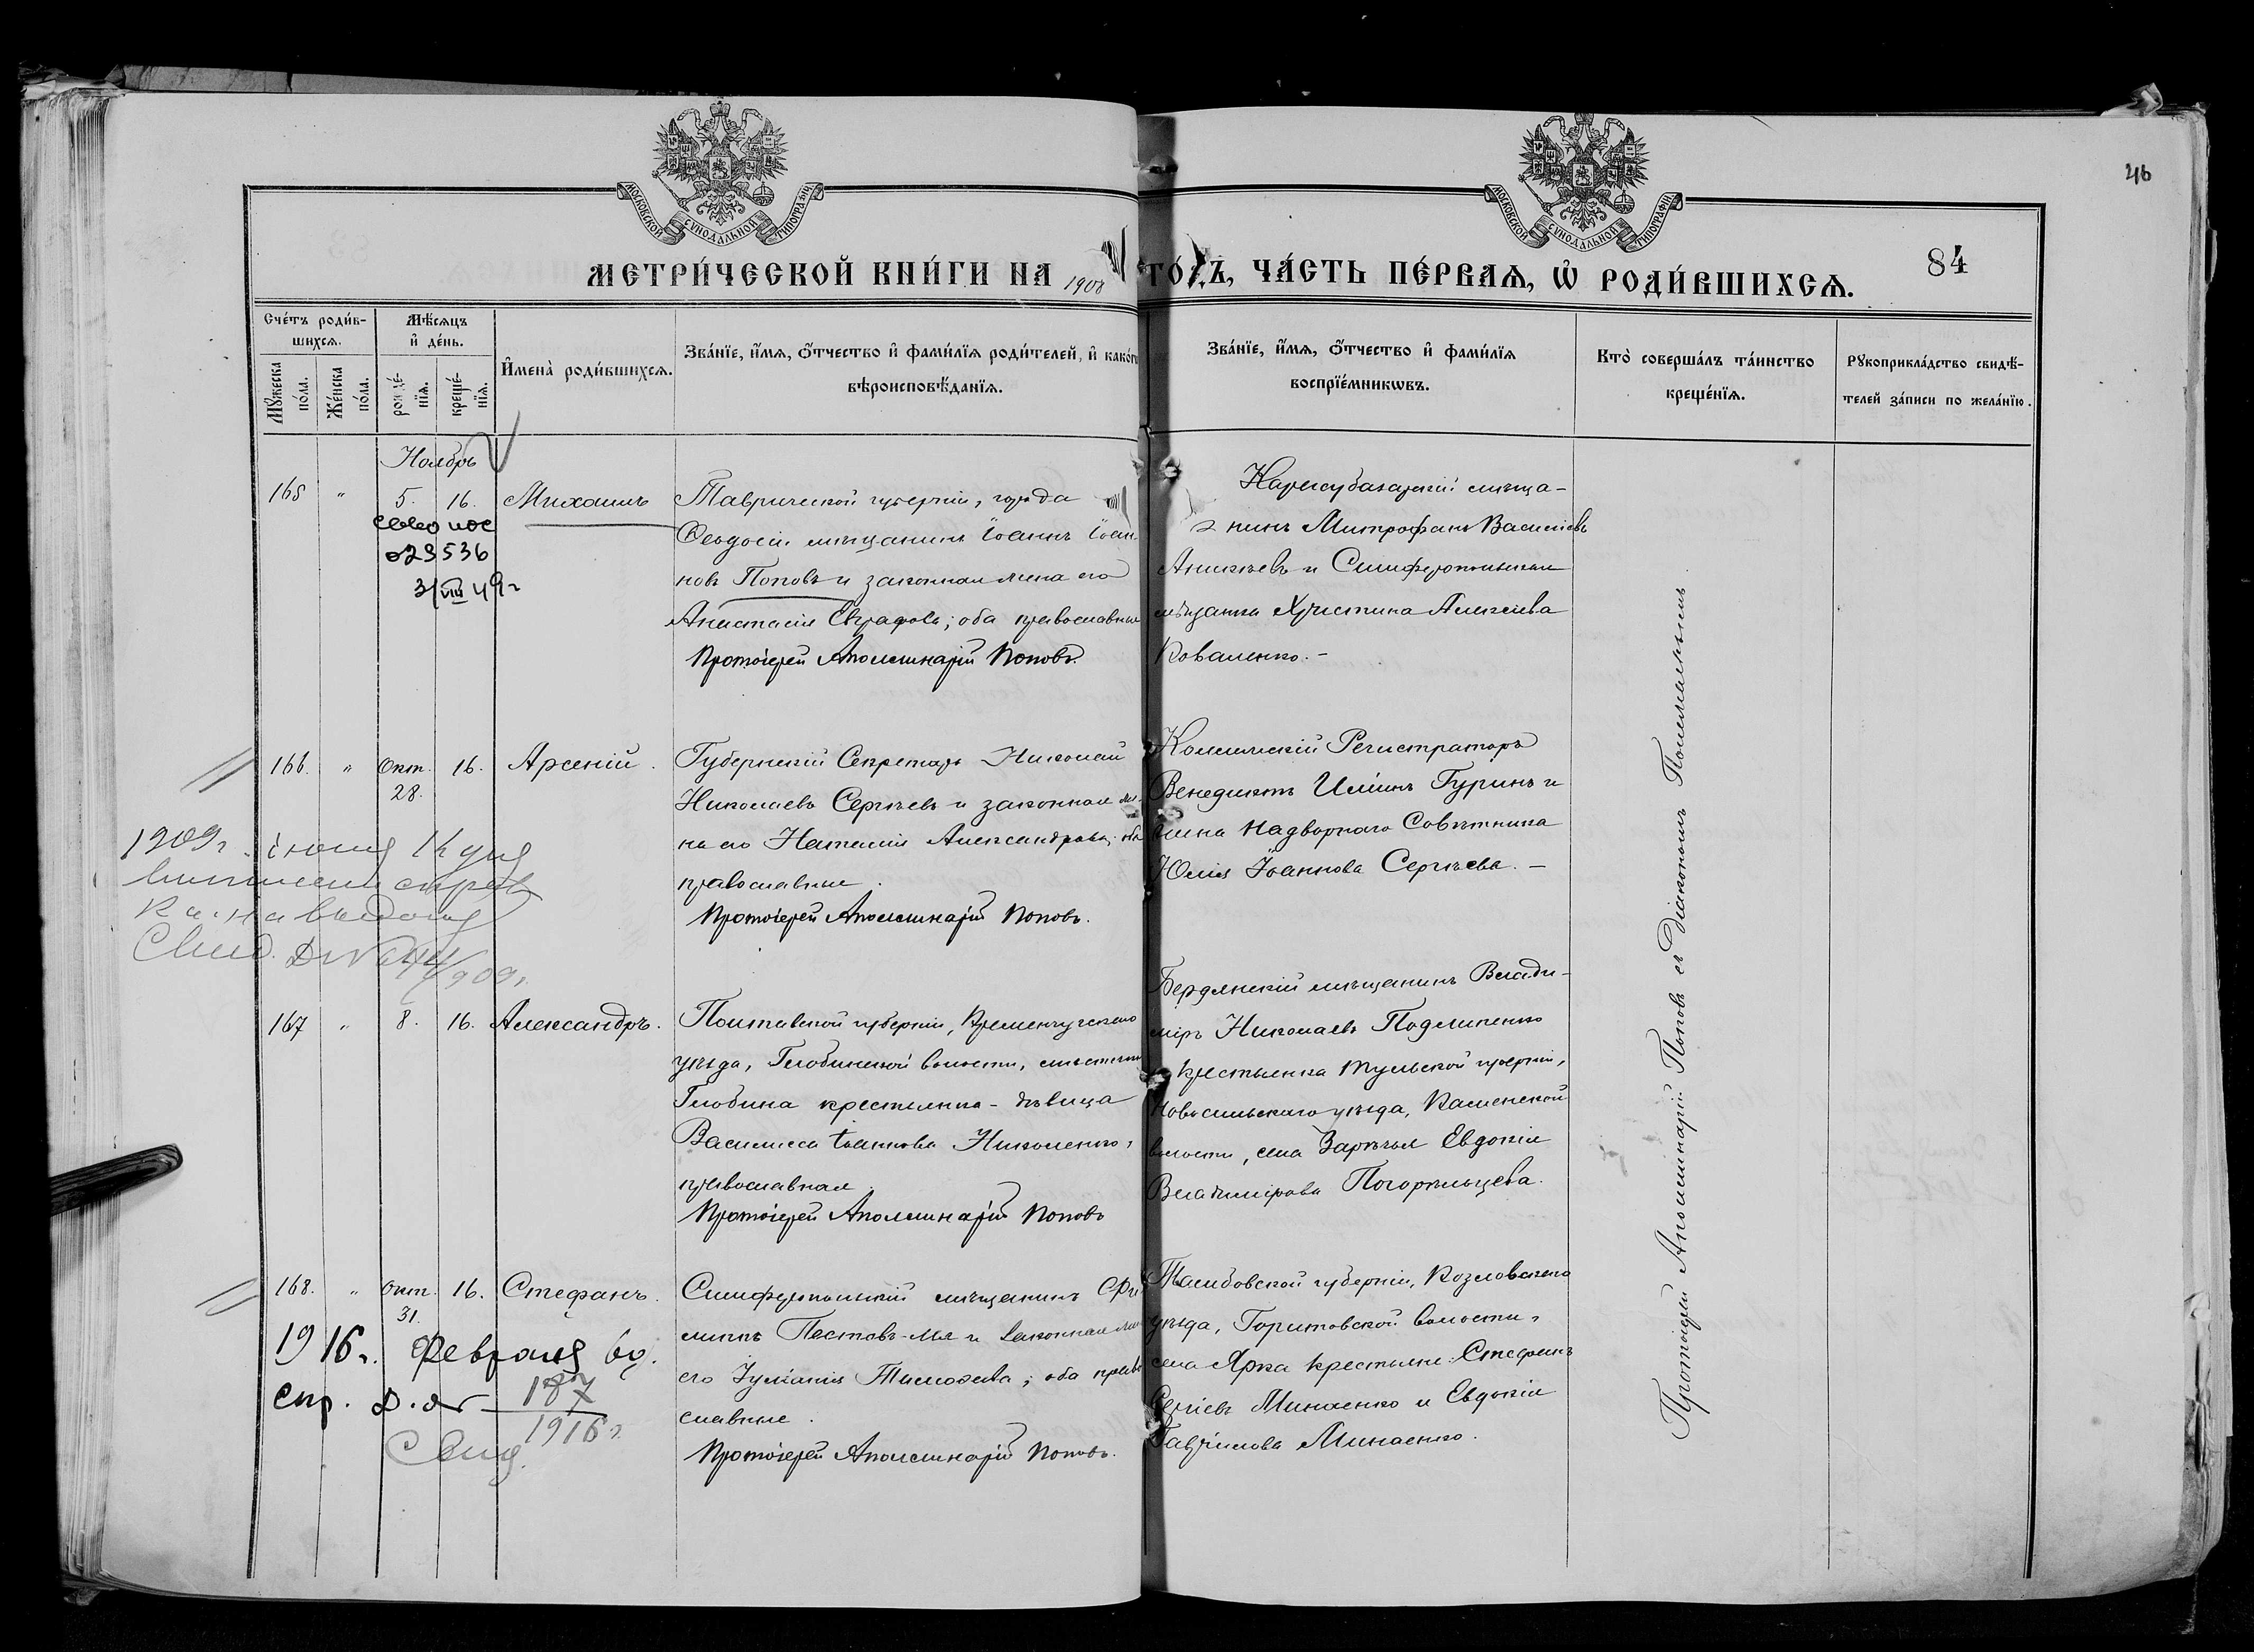 46
МОСКОВСКОЙ СѴНОДАЛЬНОЙ ТИПОГРАФІИ
МОСКОВСКОЙ СѴНОДАЛЬНОЙ ТИПОГРАФІИ
МЕТРИ́ЧЕСКОЙ КНИ́ГИ НА 1908 ГО́ДЪ, ЧА́СТЬ ПЕ́РВАѦ, Ѡ҆ РОДИ́ВШИХСѦ.
84
Сче́тъ роди́в-
шихсѧ.
Мꙋ́жеска по́ла.
Же́нска по́ла.
Мѣ́сѧцъ
и҆ де́нь.
рожде́-
нїѧ.
креще́-
нїѧ.
И҆мена̀ роди́вшихсѧ.
Зва́нїе, и҆́мѧ, ѻ҆́тчество и҆ фами́лїѧ роди́телей, и҆ како́гѡ
вѣроисповѣ́данїѧ.
Зва́нїе, и҆́мѧ, ѻ҆́тчество и҆ фами́лїѧ
воспрїе́мникѡвъ.
Кто̀ соверша́лъ та́инство
креще́нїѧ.
Рꙋкоприкла́дство свидѣ́-
телей за́писи по жела́нїю.
Ноябрь
165 " 5. 16. Михаилъ
029536
31 VIII 49 г
Таврической губерніи, города
Ѳеодосіи мѣщанинъ Іоаннъ Іоан-
новъ Поповъ и законная жена его
Анастасія Евграфова; оба православные
Протоіерей Аполлинарій Поповъ.
Карасубазарскій мѣща-
нинъ Митрофанъ Василіевъ
Аникѣевъ и Симферопольская
мѣщанка Христина Алексіева
Коваленко. –
166. " Окт. 28. 16. Арсеній.
Губернскій Секретарь Николай
Николаевъ Сергѣевъ и законная же-
на его Наталія Александрова; оба
православные.
Протоіерей Аполлинарій Поповъ.
Коллежскій Регистраторъ
Венедиктъ Иліинъ Гуринъ и
жена Надворнаго Совѣтника
Юлія Іоаннова Сергѣева. –
1909 г. іюня
справ
ка. на выдачу
Свид.
909 г.
167 " 8. 16. Александръ.
Полтавской губерніи, Кременчугскаго
уѣзда, Глобинской волости, мѣстечка
Глобина крестьянка - дѣвица
Василисса Іоаннова Николенко,
православная.
Протоіерей Аполлинарій Поповъ
Бердянскій мѣщанинъ Влади-
міръ Николаевъ Подлипенко
и крестьянка Тульской губерніи,
Новосильскаго уѣзда, Каменской
волости, села Зарѣчья Евдокія
Владимірова Погорѣльцева.
168. " Окт. 31. 16. Стефанъ.
Симферопольскій мѣщанинъ Фи-
липпъ и законная жена
его Іуліанія Тимоѳеева; оба право-
славные.
Протоіерей Аполлинарій Поповъ.
Тамбовской губерніи, Козловскаго
уѣзда, Горитовской волости,
села Ярка крестьяне: Стефанъ
Сергіевъ Минаенко и Евдокія
Гавріилова Минаенко.
1916 г. Февраля 6 д.
спр. д. № 187
1916 г.
Свид.
Протоіерей Аполлинарій Поповъ съ Діакономъ